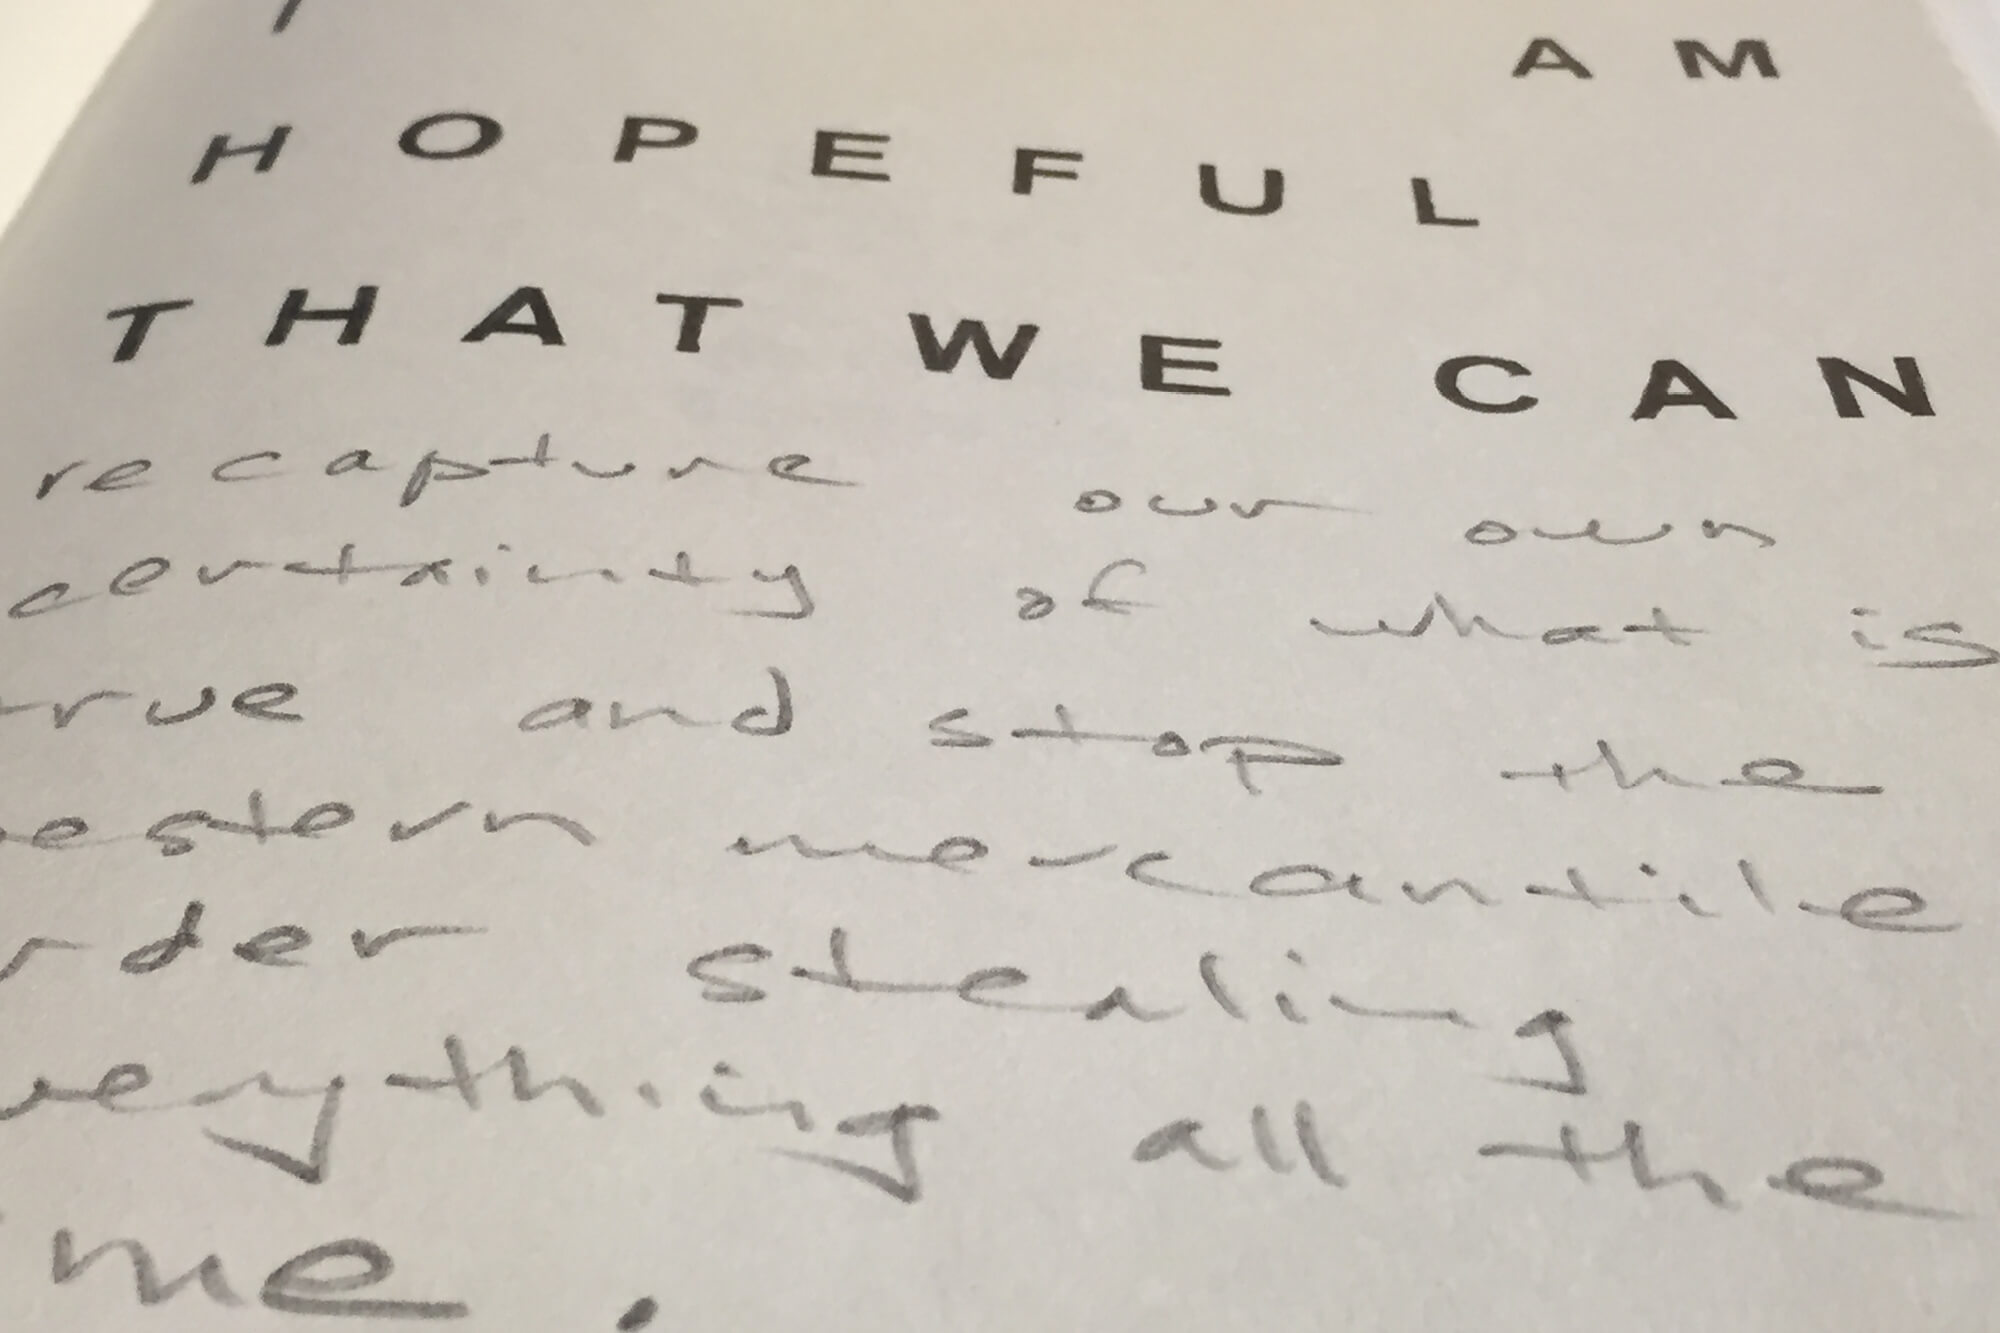 I AM
HOPEFUL
THAT WE CAN
recapture our own
certainty of what is
true and stop the
estern mercantile
rder stealing
verything all the
ime.